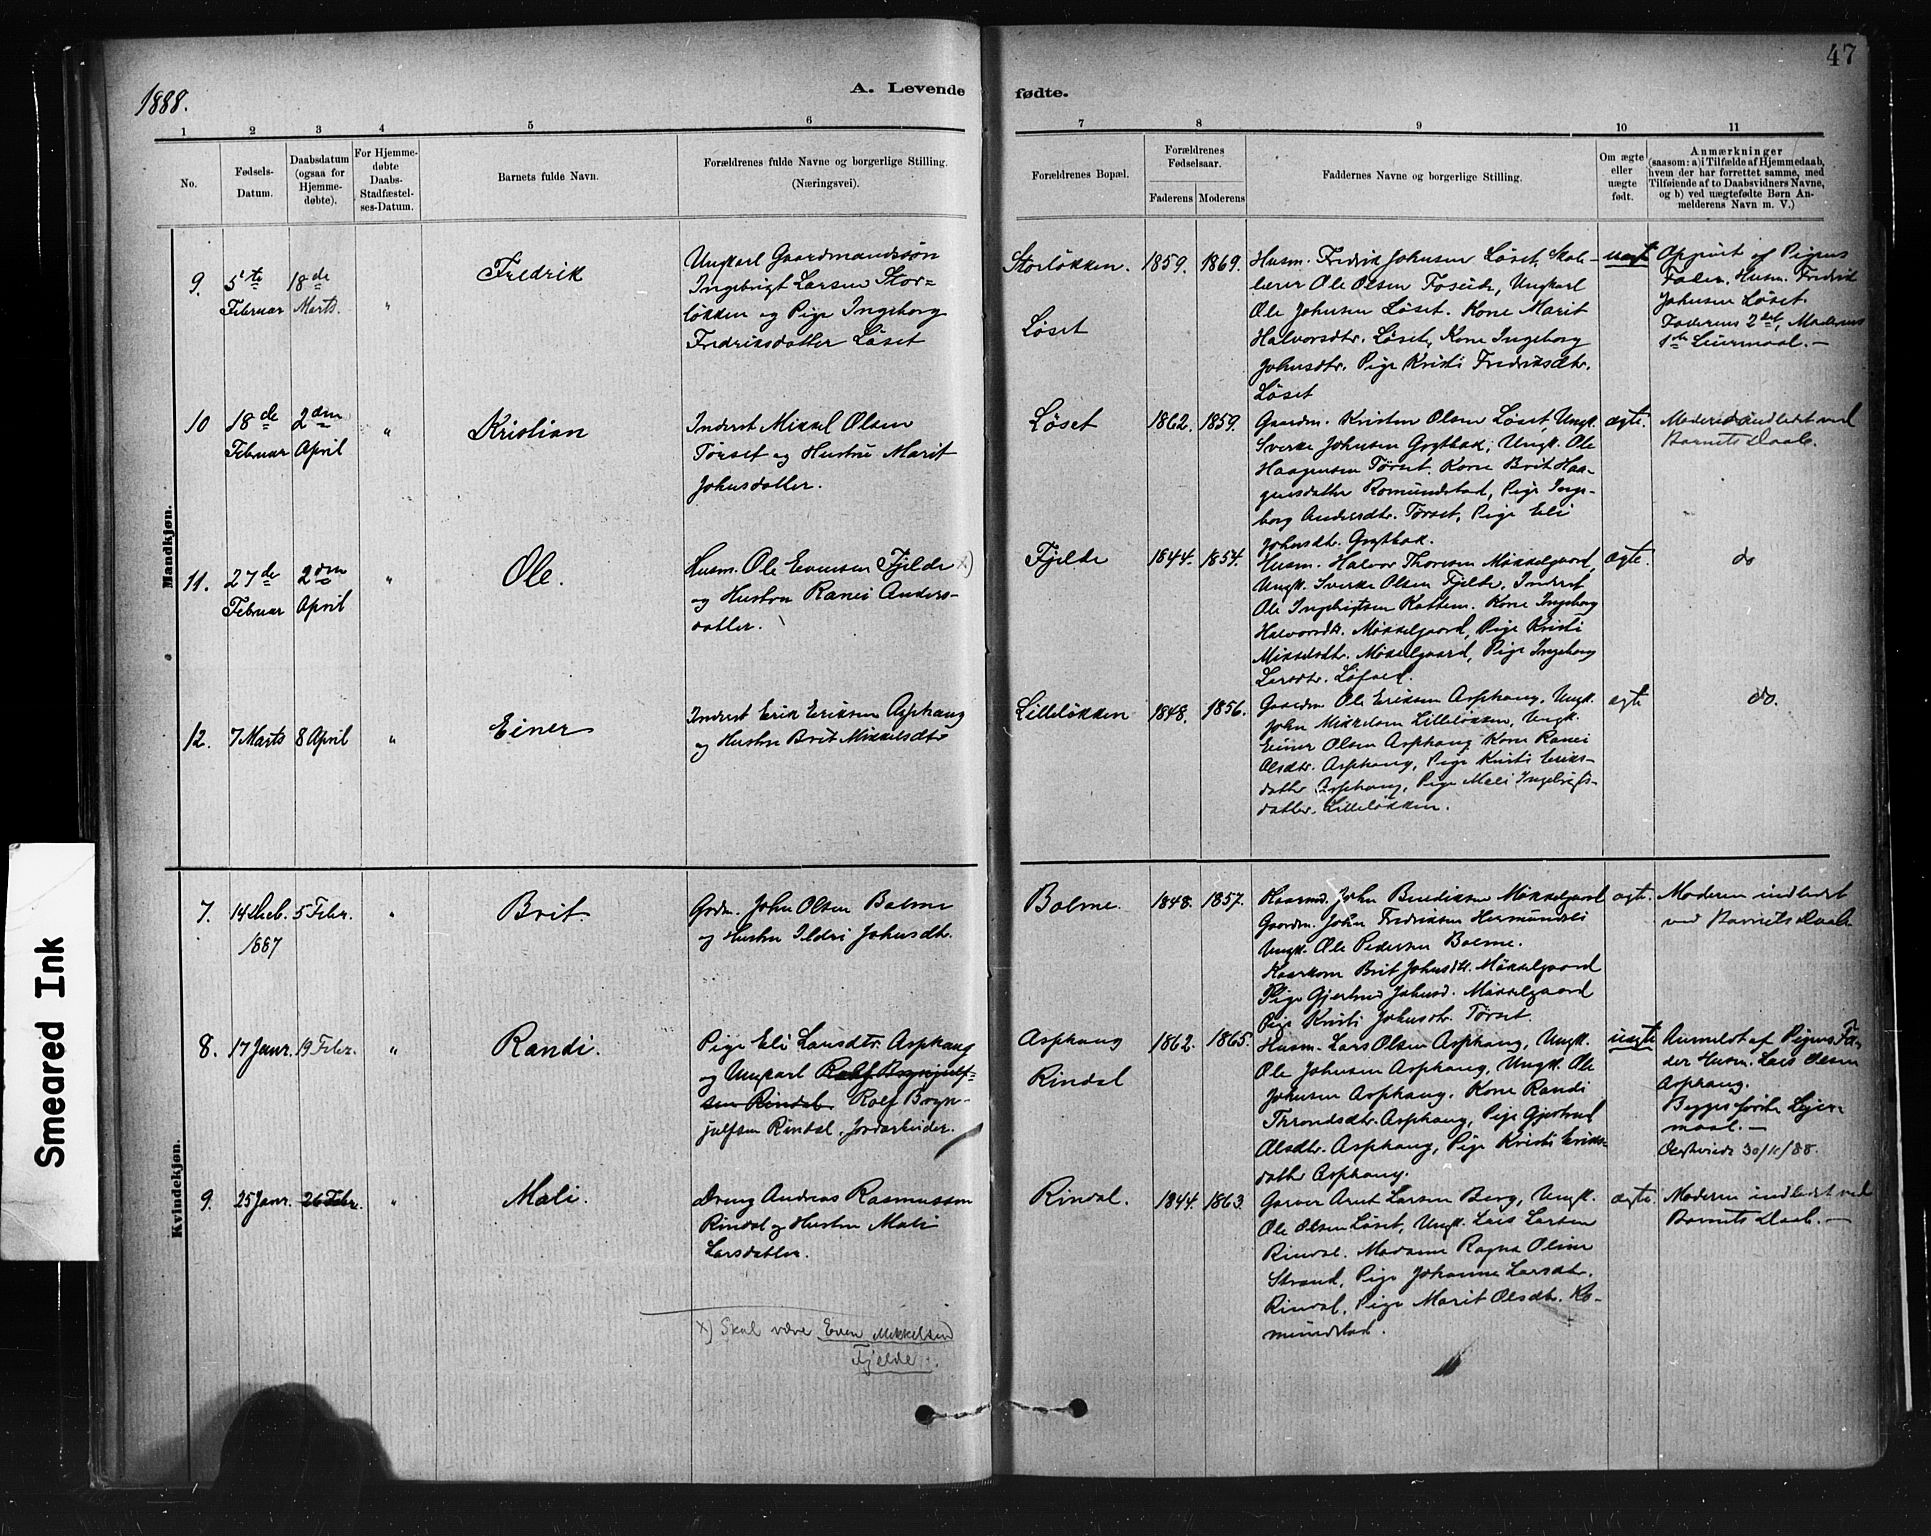 47
1888.
A. Levende
fødte.
1 2 3 4 5 6
7 8 9 10 11
No.
Fødsels-
Datum.
Daabsdatum
(ogsaa for
Hjemme-
døbte).
For Hjemme-
døbte
Daabs-
Stadfæstel-
ses-Datum.
Barnets fulde Navn.
Forældrenes fulde Navne og borgerlige Stilling.
(Næringsvei).
Forældrenes Bopæl.
Forældrenes
Fødselsaar.
Faderens Moderens
Faddernes Navne og borgerlige Stilling.
Om ægte
eller
uægte
født.
Anmærkninger
(saasom: a) i Tilfælde af Hjemmedaab,
hvem der har forrettet samme, med
Tilføiende af to Daabsvidners Navne,
og b) ved uægtefødte Børn An-
melderens Navn m. V.)
Mandkjøn.
9.
5te
Februar
18de
Marts.
"
Fredrik
Ungkarl Gaardmandssøn
Ingebrigt Larsen Stor-
løkken og Pige Ingeborg
Fredriksdatter Løset
Storløkken.
Løset
1859. 1869.
Husm. Fredrik Johnsen Løset, Skole-
lærer Ole Olsen Foseide, Ungkarl
Ole Johnsen Løset. Kone Marit
Halvorsdtr. Løset, Kone Ingeborg
Johnsdtr. Pige Kristi Fredriksdtr.
Løset
uægt
Opgivet af Pigens
Fader, Husm. Fredrik
Johnsen Løset.
Faderens 2det, Moderens
1ste Leiermaal. —
10
18de
Februar
2den
April
"
Kristian
Inderst Mikkel Olsen
Tørset og Hustru Marit
Johnsdatter.
Løset
1862. 1859.
Gaardm. Kristen Olsen Løset, Ungk.
Sverke Johnsen Grytbak, Ungk. Ole
Haagensen Tørset. Kone Brit Haa-
gensdatter Romundstad, Pige Inge-
borg Andersdtr. Tørset, Pige Eli
Johnsdtr. Grytbak.
ægte.
Moderen indledet ved
Barnets Daab.
11.
27de
Februar
2den
April
"
Ole.
Husm. Ole Evensen Fjelde x)
og Hustru Ranei Anders-
datter.
Fjelde
1844. 1854.
Husm. Halvor Thoresen Møkkelgaard,
Ungk. Sverke Olsen Fjelde, Inderst
Ole Ingebrigtsen Kattem. Kone Ingeborg
Halvorsdtr. Møkkelgaard, Pige Kristi
Mikkelsdtr. Møkkelgaard, Pige Ingeborg
Larsdtr. Løfald.
ægte.
do
12.
7 Marts
8 April
"
Einer
Inderst Erik Eriksen Asphaug
og Hustru Brit Mikkelsdtr
Lilleløkken
1848. 1856.
Gaardm Ole Eriksen Asphaug, Ungk.
John Mikkelsen Lilleløkken, Ungk.
Einer Olsen Asphaug Kone Ranei
Olsdtr. Asphaug, Pige Kristi Eriks-
datter Asphaug, Pige Mali Ingebrigts-
datter Lilleløkken.
ægte
do.
Kvindekjøn.
7.
14 Deb.
1887
5 Febr.
"
Brit
Gdm. John Olsen Bolme
og Hustru Ildri Johnsdtr.
Bolme.
1848. 1857.
John Bendiksen Møkkelgaard
Gaardm. John Fredriksen Hermundsli
Ungk. Ole Pedersen Bolme.
Brit Johnsdtr. Møkkelgaard
Pige Gjertrud Johnsd. Møkkelgaard
Pige Kristi Johnsdtr. Tørset.
ægte.
Moderen indledet
ved Barnets Daab
8.
17 Janr.
19 Febr.
"
Randi.
Pige Eli Larsdtr. Asphaug
og Ungkarl Rolf Brynjulf-
sen Rindal. Rolf Bryn-
julfsen Rindal, Jordarbeider.
Asphaug
Rindal
1862. 1865.
Husm. Lars Olsen Asphaug, Ungk.
Ole Johnsen Asphaug, Ungk. Ole
Johnsen Asphaug. Kone Randi
Throndsdtr. Asphaug, Pige Gjertrud
Olsdtr. Asphaug, Pige Kristi Eriks-
datter Asphaug.
uægte
Anmeldt af Pigens Fa-
der Husm. Lars Olsen
Asphaug.
Begges første Leier-
maal. —
30/11/88.
9.
25 Janr.
26 Febr.
"
Mali.
Dreng Andreas Rasmussen
Rindal og Hustru Mali
Larsdatter.
Rindal.
1844. 1863.
Garver Arnt Larsen Berg, Ungk.
Ole Olsen Løset, Ungk. Lars Larsen
Rindal. Madame Ragna Oline
Strand, Pige Johanna Larsdtr.
Rindal, Pige Marit Olsdtr. Ro-
mundstad.
ægte.
Moderen indledet ved
Barnets Daab. —
x) Skal være Even Mikkelsen
Fjelde.
Smeared Ink